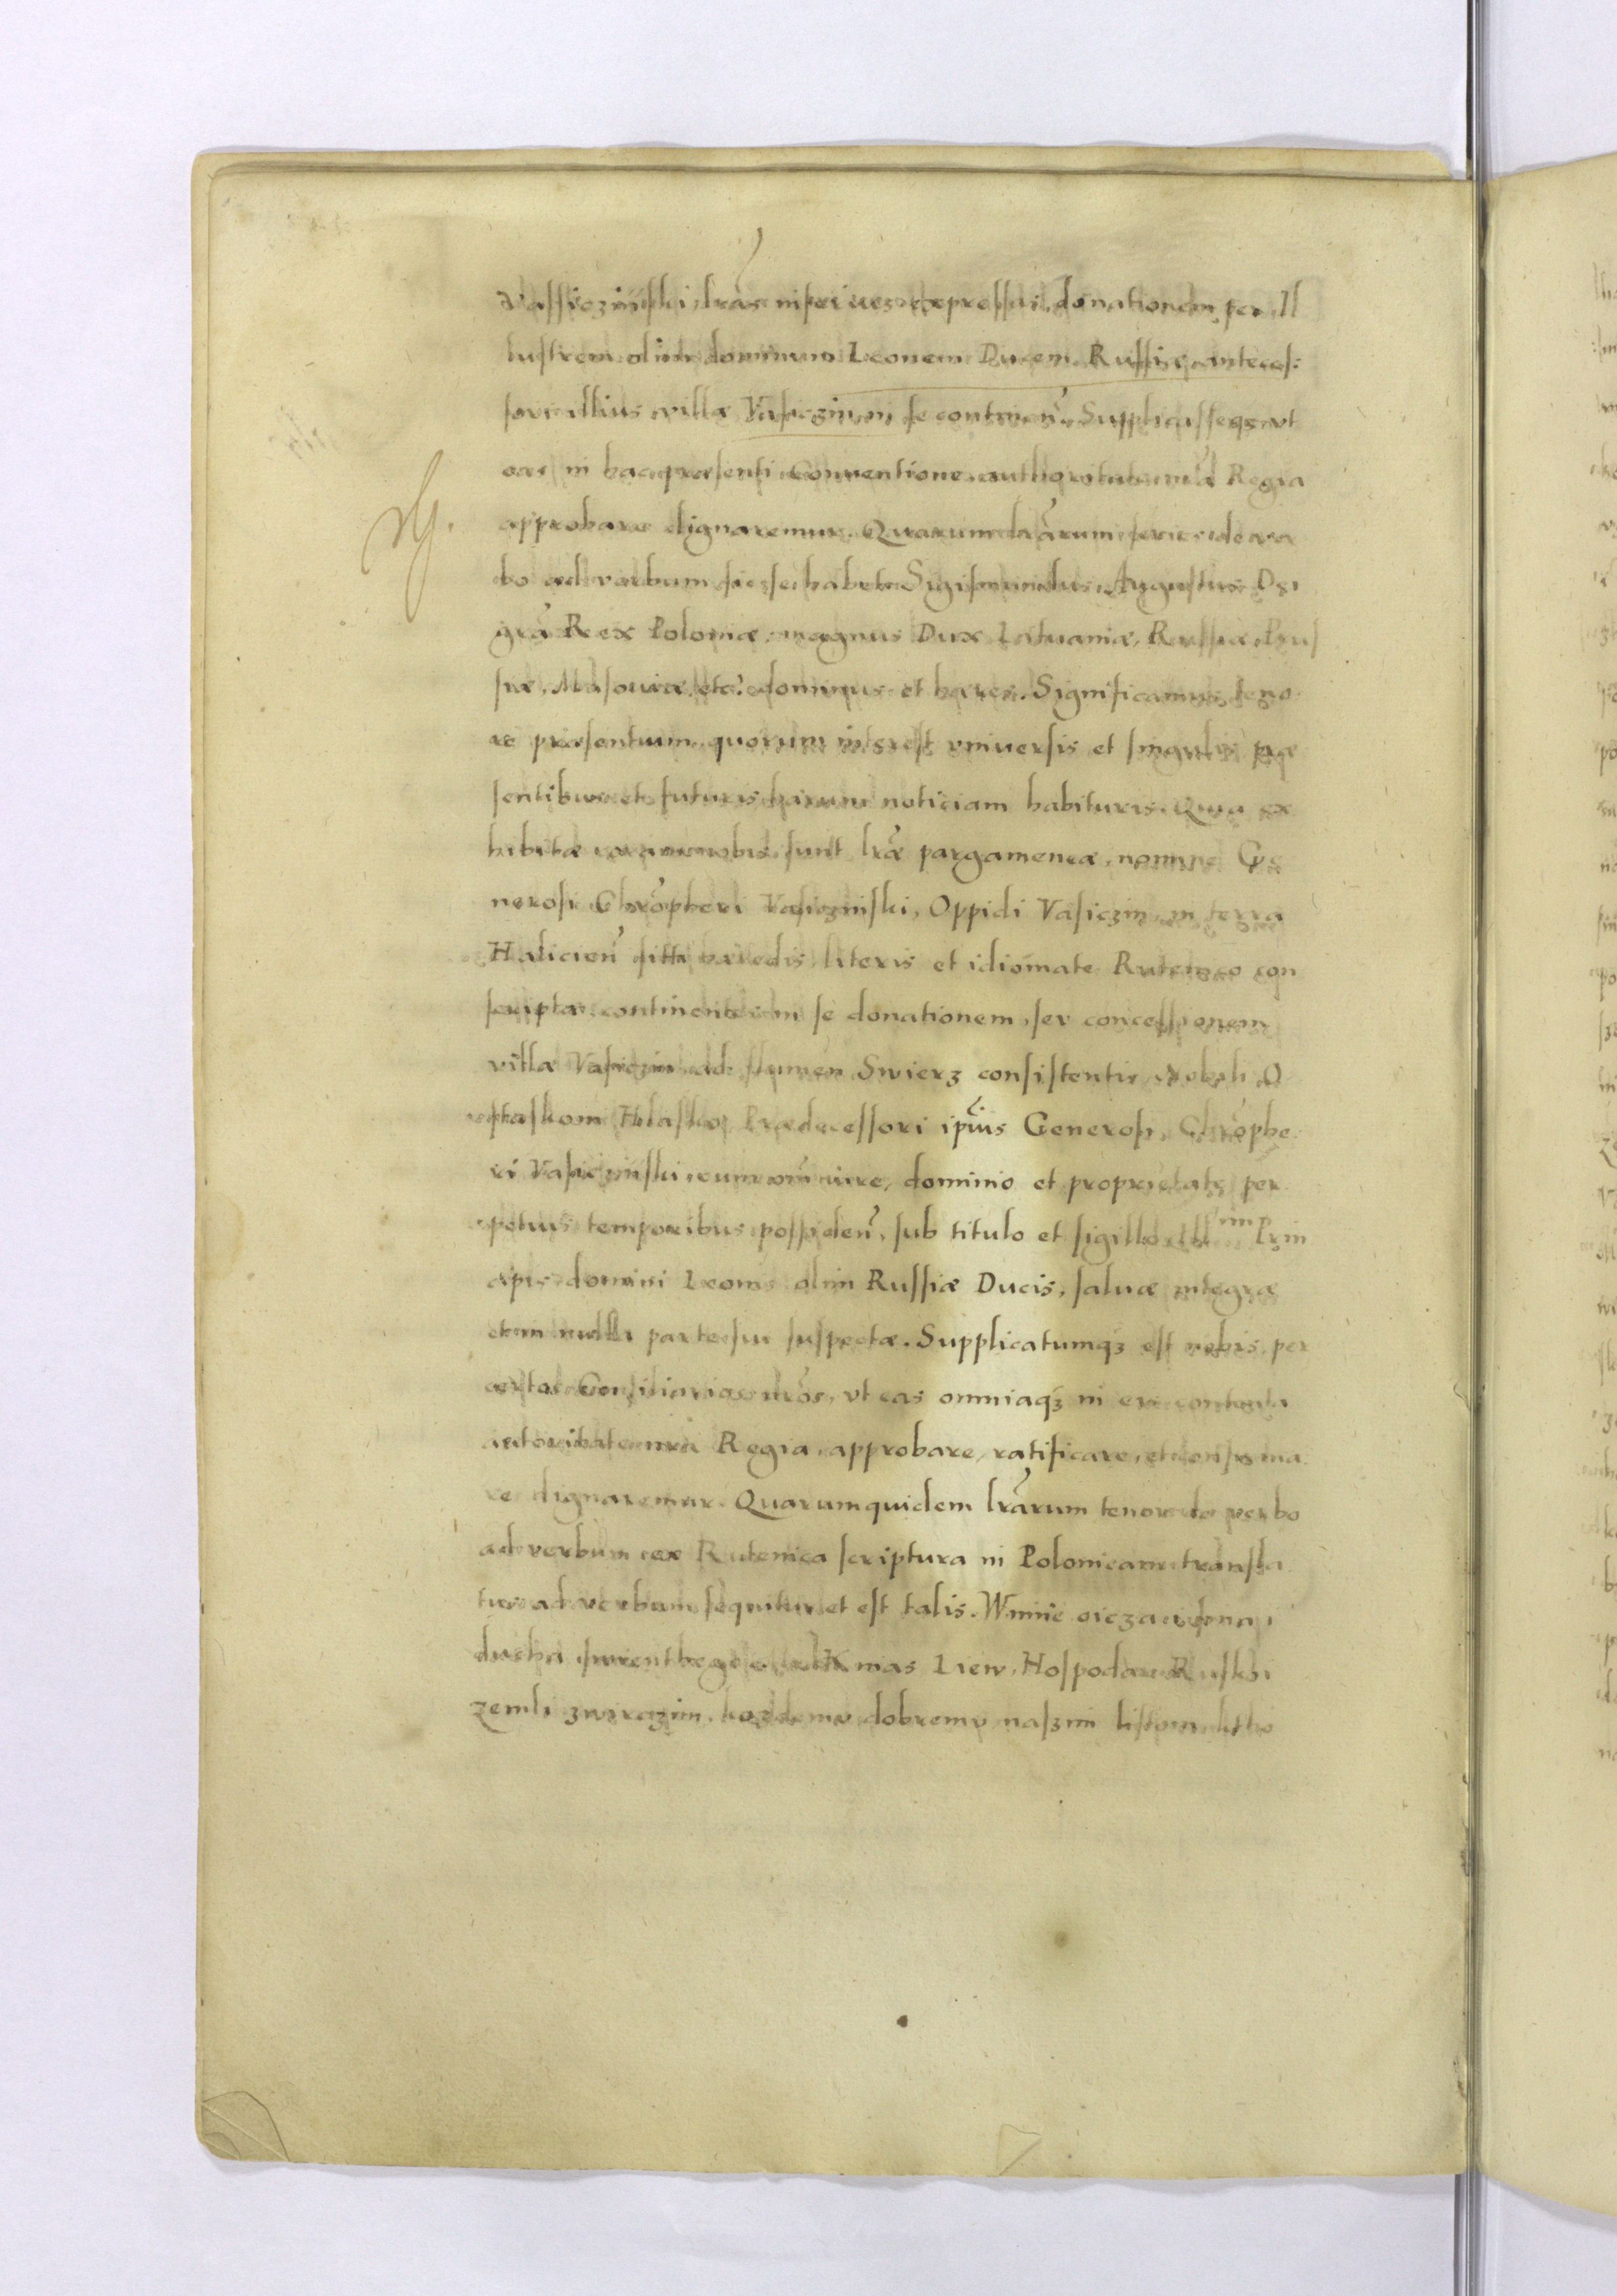 Vassiczinski, lrãs inferius expressas, donationem per Il
lustrem olim dominum Leonem Ducem Russiæ antecess:
sori illius villæ Vasiczin, in se continen̄. Supplicasseqȝ vt
eas in hac præsenti Conventione authoritate nrã Regia
approbare dignaremur. Quarum lrãrum series de ver
bo ad verbum sic se habet. Sigismundus Augustus Dei
grã Rex Poloniæ, magnus Dux Lituaniæ, Russiæ, Prus
siæ, Masouiæ, etc. dominus et hæres. Significamus teno
re præsentium, quorum interest vniuersis et singulis præ
sentibus et futuris harum noticiam habituris. Quia ex
hibitæ coram nobis sunt lræ pargameneæ, nomine Ge
nerosi Chrõpheri Vasiczinski, Oppidi Vasiczin, in terra
Halicien̄ siti hæredis, literis et idiomate Rutenico con
scriptæ, continentes in se donationem, seu concessionem
villæ Vasiczin ad flumen Swierz consistentis, Nobili O
staskom Hlasko, Prædecessori ipīus Generosi, Chrõphe
ri Vasiczinski, cum omī iure, dominio et proprietate per
petuis temporibus possiden̄, sub titulo et sigillo Ill^mi Prin
cipis domini Leonis olim Russiæ Ducis, saluæ integræ
et in nulla parte sui suspectæ. Supplicatumqȝ est nobis per
certos Consiliarios nrõs, vt eas omniaqȝ in eis contenta
autoritate nrã Regia, approbare, ratificare, et confirma
re dignaremur. Quarumquidem lrãrum tenor de verbo
ad verbum ex Rutenica scriptura in Polonicam transla
tus ad verbum sequitur et est talis. W imie oicza i sina i
ducha swienthego, mas Liew, Hospodar Ruskei
zemli dobremv naszim listom ktho